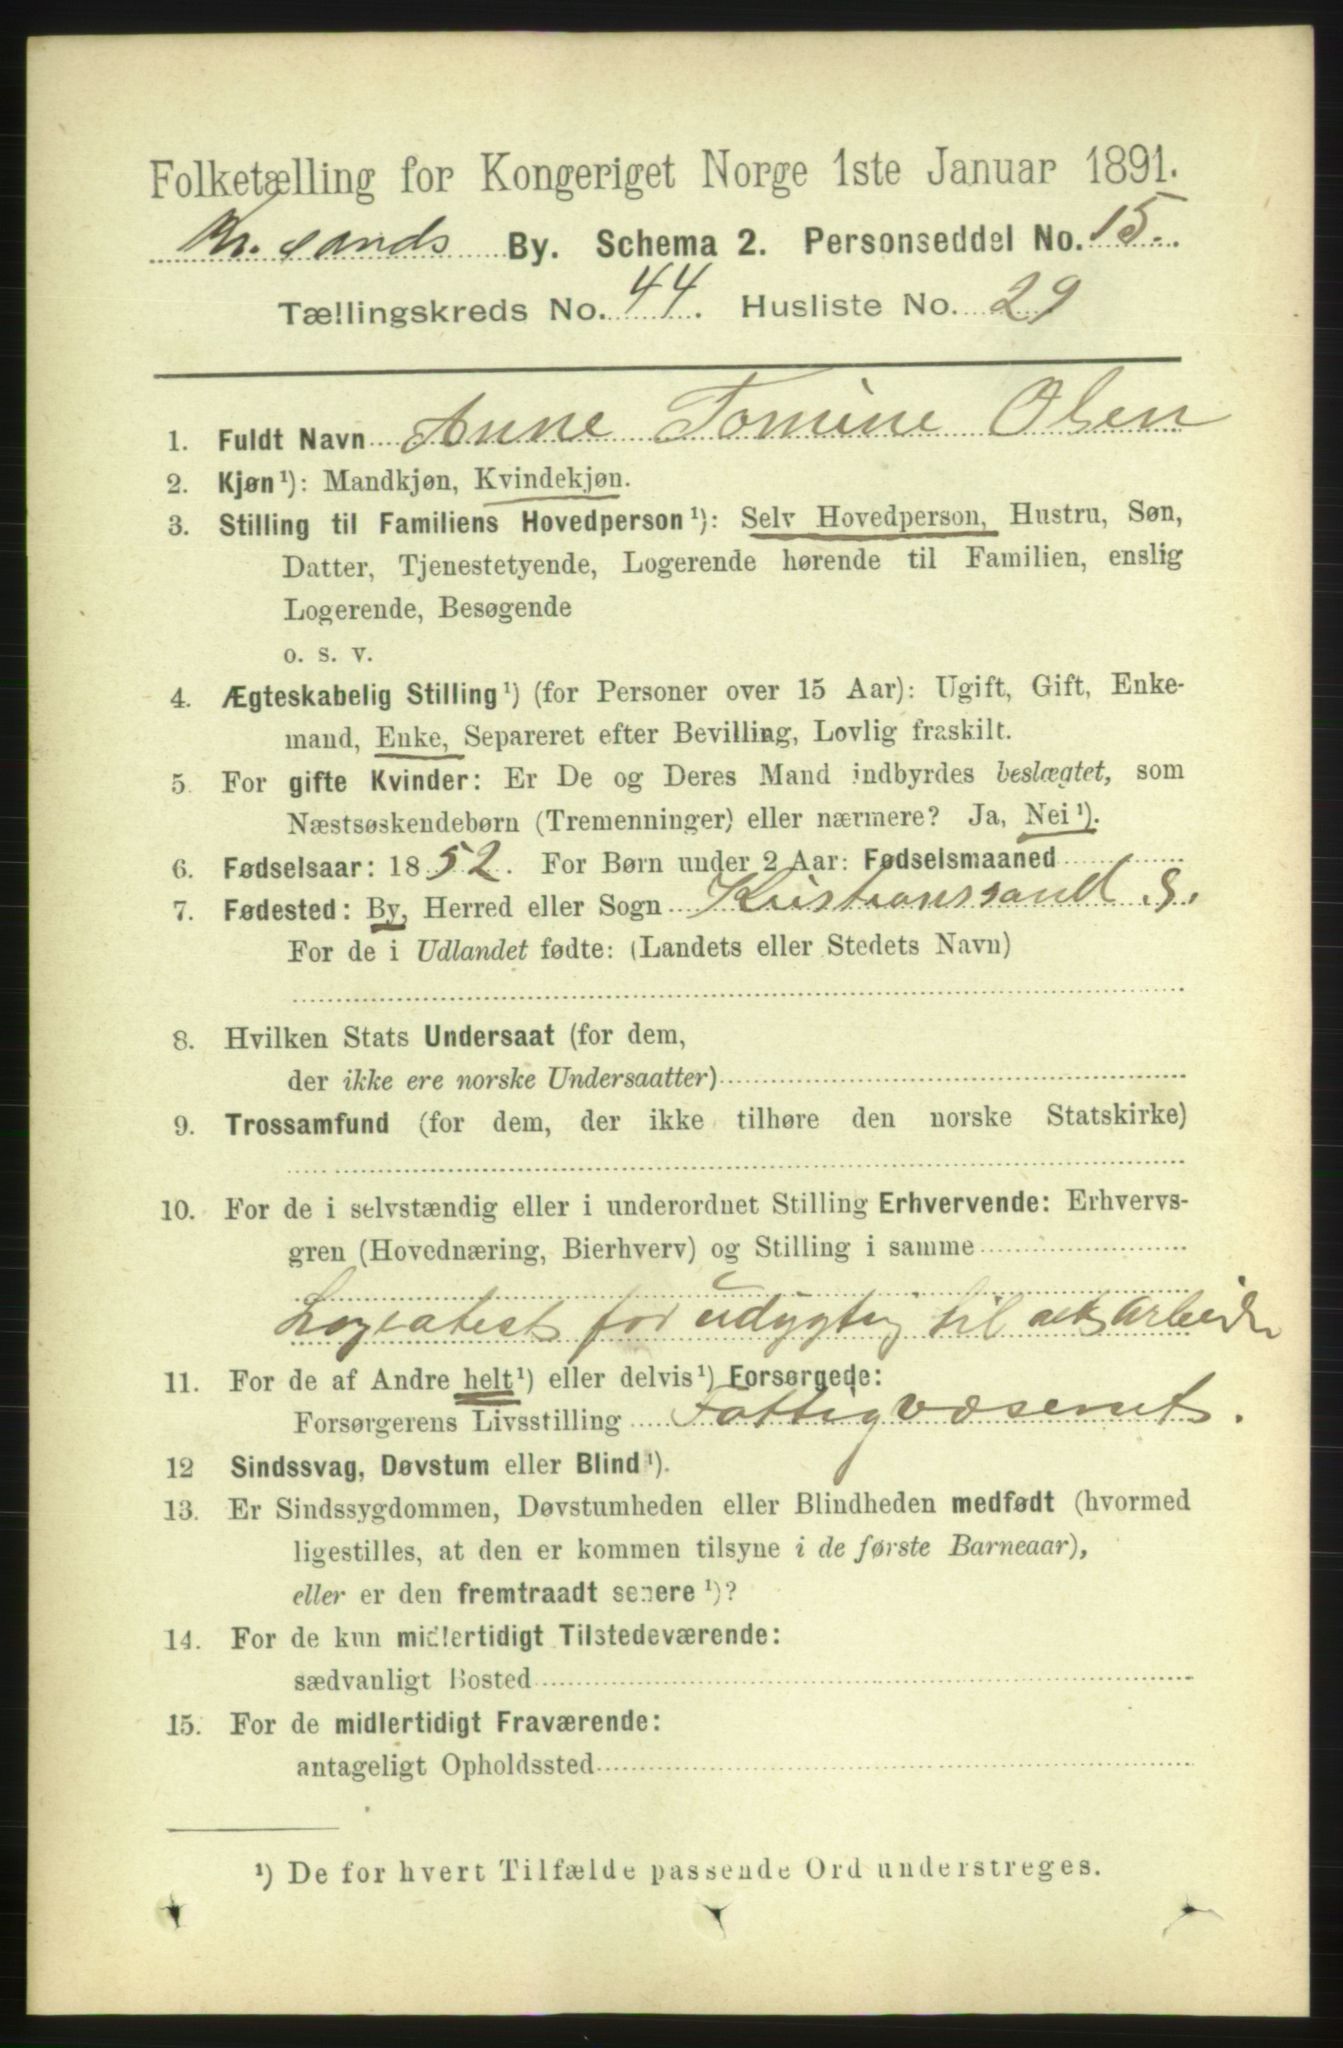 Folketælling for Kongeriget Norge 1ste Januar 1891.
Kr.sands By. Schema 2. Personseddel No. 15.
Tællingskreds No. 44. Husliste No. 29
1. Fuldt Navn Anne Tomine Olsen
2. Kjøn¹): Mandkjøn, Kvindekjøn.
3. Stilling til Familiens Hovedperson¹): Selv Hovedperson, Hustru, Søn,
Datter, Tjenestetyende, Logerende hørende til Familien, enslig
Logerende, Besøgende
o. s. v.
4. Ægteskabelig Stilling¹) (for Personer over 15 Aar): Ugift, Gift, Enke-
mand, Enke, Separeret efter Bevilling, Lovlig fraskilt.
5. For gifte Kvinder: Er De og Deres Mand indbyrdes beslægtet, som
Næstsøskendebørn (Tremenninger) eller nærmere? Ja, Nei¹).
6. Fødselsaar: 1852. For Børn under 2 Aar: Fødselsmaaned
7. Fødested: By, Herred eller Sogn Kristianssand S.
For de i Udlandet fødte: (Landets eller Stedets Navn)
8. Hvilken Stats Undersaat (for dem,
der ikke ere norske Undersaatter)
9. Trossamfund (for dem, der ikke tilhøre den norske Statskirke)
10. For de i selvstændig eller i underordnet Stilling Erhvervende: Erhvervs-
gren (Hovednæring, Bierhverv) og Stilling i samme
for udygtig til at Arbeide
11. For de af Andre helt¹) eller delvis¹) Forsørgede:
Forsørgerens Livsstilling Fattigvæsenet.
12 Sindssvag, Døvstum eller Blind¹).
13. Er Sindssygdommen, Døvstumheden eller Blindheden medfødt (hvormed
ligestilles, at den er kommen tilsyne i de første Barneaar),
eller er den fremtraadt senere¹)?
14. For de kun midlertidigt Tilstedeværende:
sædvanligt Bosted
15. For de midlertidigt Fraværende:
antageligt Opholdssted
¹) De for hvert Tilfælde passende Ord understreges.